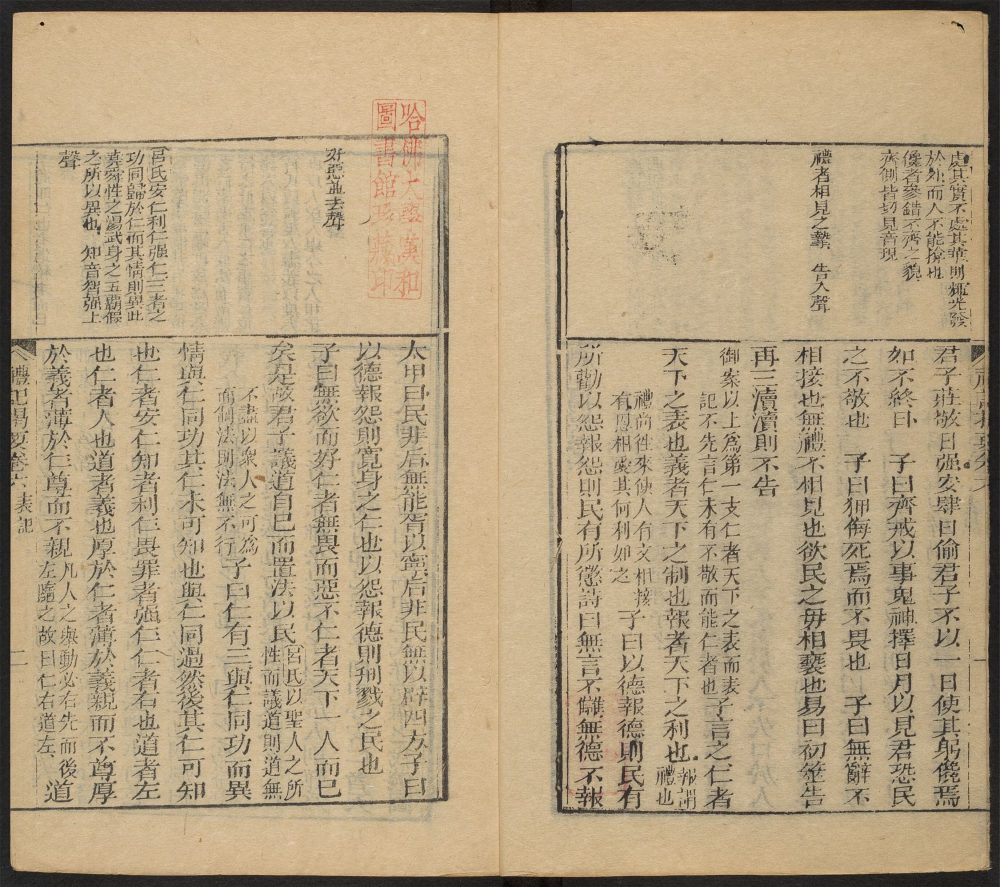 處其實不處其華則輝光發
於外而人不能揜也
儳者參錯不齊之貌
齊側皆切見音現
禮者相見之摯　告入聲
君子莊敬日强安肆日偷君子不以一日使其躬儳焉
如不終日　子曰齊戒以事鬼神擇日月以見君恐民
之不敬也　子曰狎侮死焉而不畏也　子曰無辭不
相接也無禮不相見也欲民之毋相褻也易曰初筮告
再三瀆瀆則不告
御案以上爲第一支仁者天下之表而表
記不先言仁未有不敬而能仁者也
子言之仁者
天下之表也義者天下之制也報者天下之利也
報謂
禮也
禮尚往來使人有文相接
有恩相愛其何利如之
子曰以德報德則民有
所勸以怨報怨則民有所懲詩曰無言不讎無德不報
哈佛大學漢和
圖書館珍藏印
好惡並去聲
呂氏安仁利仁强仁三者之
功同歸於仁而其情則異此
堯舜性之湯武身之五霸假
之所以異也　知音智强上
聲
太甲曰民非后無能胥以寧后非民無以辟四方子曰
以德報怨則寬身之仁也以怨報德則刑戮之民也
子曰無欲而好仁者無畏而惡不仁者天下一人而已
矣是故君子議道自己而置法以民
呂氏以聖人之所
性而議道則道無
不盡以衆人之可爲
而制法則法無不行
子曰仁有三與仁同功而異
情與仁同功其仁未可知也與仁同過然後其仁可知
也仁者安仁知者利仁畏罪者强仁仁者右也道者左
也仁者人也道者義也厚於仁者薄於義親而不尊厚
於義者薄於仁尊而不親
凡人之舉動必右先而後
左隨之故曰仁右道左
道
禮記揭要卷六　表記
二